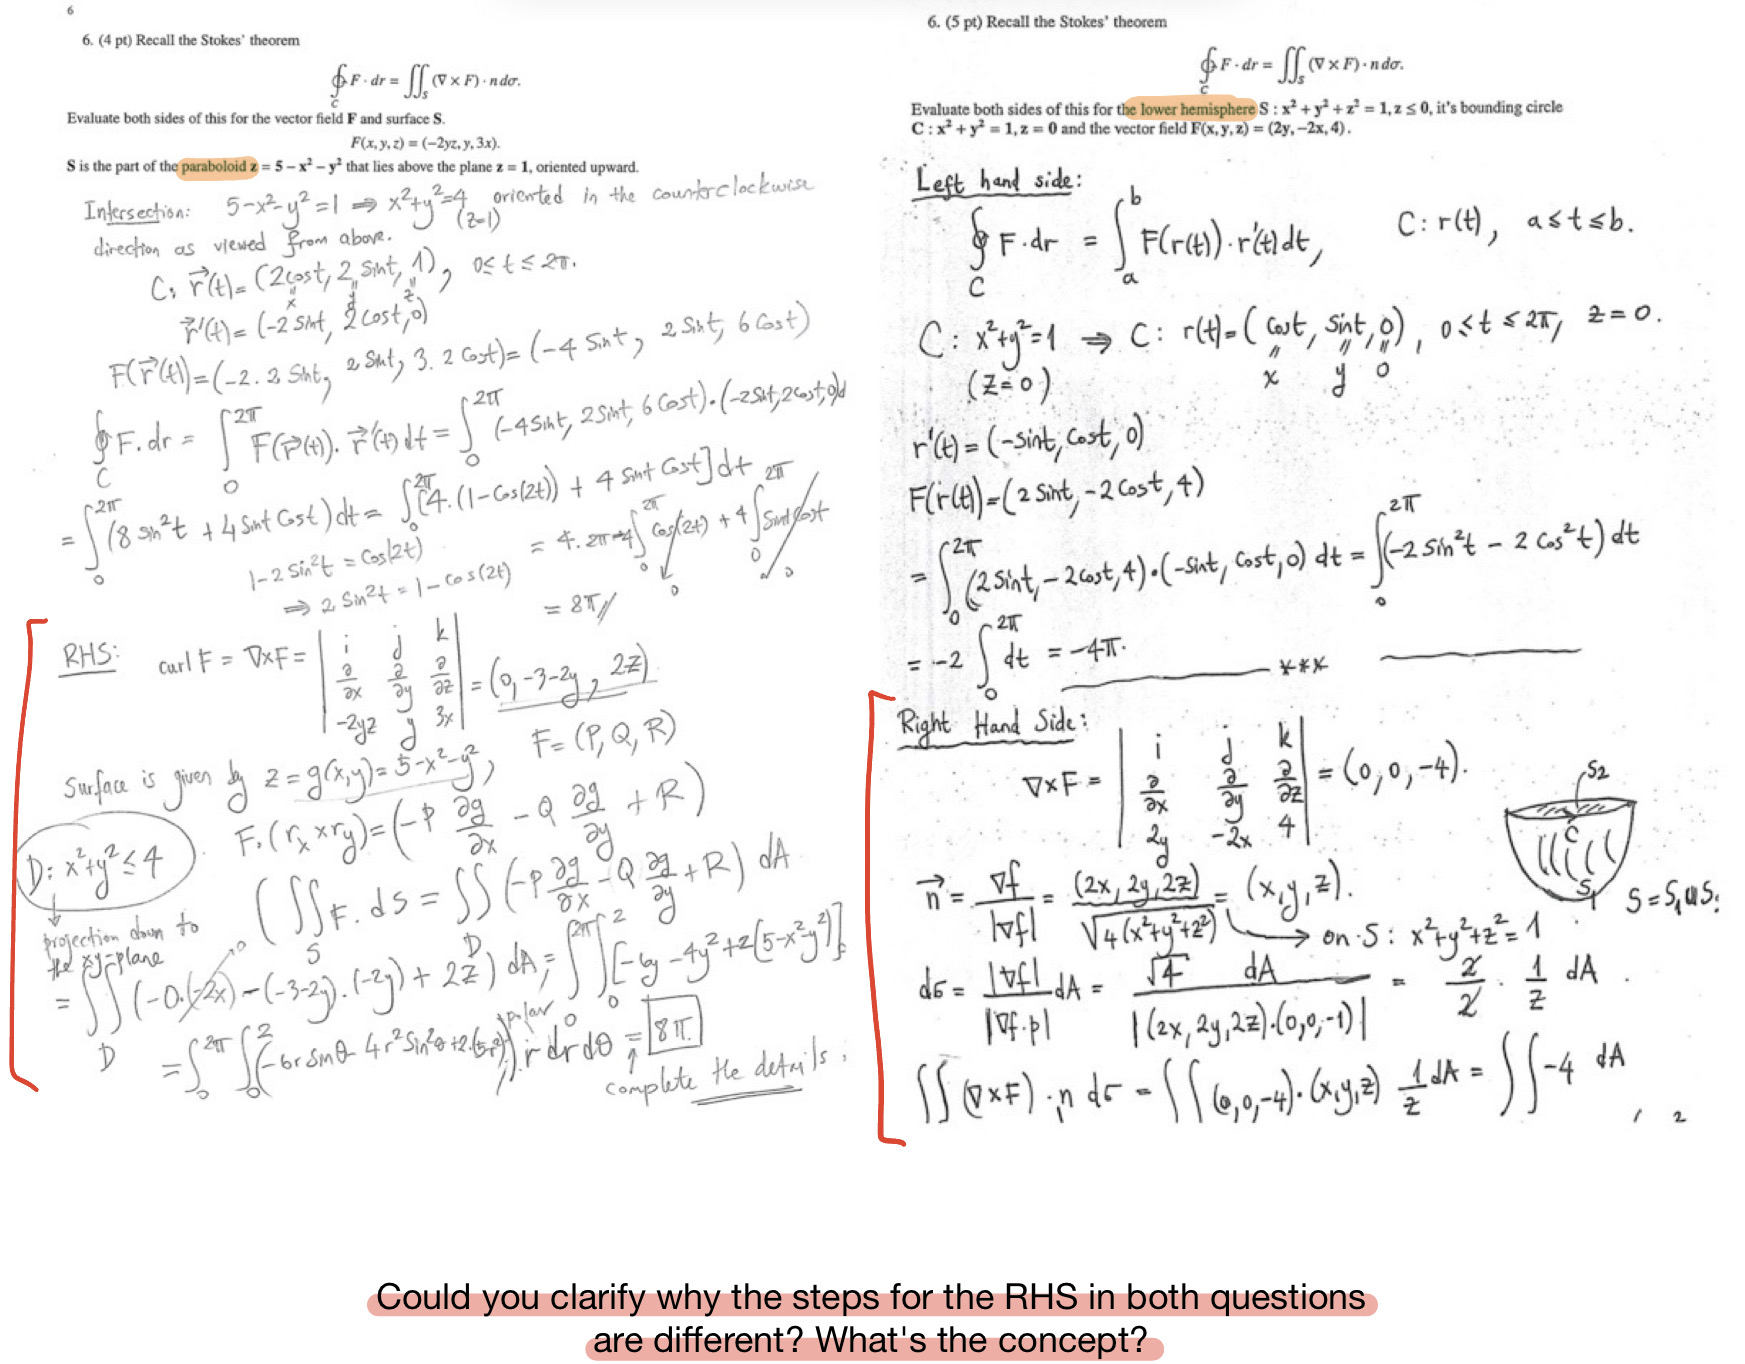 6
6. (4 pt) Recall the Stokes' theorem
∮_C F · dr = ∬_S (∇ × F) · n dσ.
Evaluate both sides of this for the vector field F and surface S.
F(x, y, z) = (−2yz, y, 3x).
S is the part of the paraboloid z = 5 − x² − y² that lies above the plane z = 1, oriented upward.
Intersection: 5-x²-y²=1 ⇒ x²+y²=4 oriented in the counterclockwise
(z=1)
direction as viewed from above.
C: r⃗(t)=(2cost, 2 sint, 1), 0≤t≤2π.
x y z
r⃗'(t)=(-2 sint, 2 cost, 0)
F(r⃗(t))=(-2.2 Sint, 2 Sint, 3.2 Cost)=(-4 Sint, 2 Sint, 6 Cost)
∮_C F.dr = ∫_0^2π F(r⃗(t)). r⃗'(t) dt = ∫_0^2π (-4Sint, 2Sint, 6 Cost).(-2Sint, 2Cost, 0)d
= ∫_0^2π (8 sin²t + 4 Sint Cost) dt = ∫_0^2π [4.(1-Cos(2t)) + 4 Sint Cost] dt
1-2 Sin²t = Cos(2t)
= 4.2π-4∫_0^2π Cos(2t) + 4∫_0^2π Sint Cost
0 0
⇒ 2 Sin²t = 1-Cos(2t)
= 8π//
RHS: curl F = ∇×F = | i j k |
| ∂/∂x ∂/∂y ∂/∂z | = (0, -3-2y, 2z)
| -2yz y 3x |
F = (P, Q, R)
Surface is given by z = g(x,y) = 5-x²-y²,
F.(r_x × r_y) = (-P ∂g/∂x - Q ∂g/∂y + R)
D: x²+y² ≤ 4
(∬_S F.ds = ∬_D (-P ∂g/∂x - Q ∂g/∂y + R) dA
projection down to
the xy-plane
= ∬_D (-0.(-2x) - (-3-2y).(-2y) + 2z) dA = ∫_0^2π ∫_0^2 [-6y - 4y² + 2(5-x²-y²)]
0
polar
= ∫_0^2π ∫_0^2 (-6r Sinθ - 4r² Sin²θ + 2.(5-r²)) r dr dθ = 8π.
complete the details.
6. (5 pt) Recall the Stokes' theorem
∮_C F · dr = ∬_S (∇ × F) · n dσ.
Evaluate both sides of this for the lower hemisphere S : x² + y² + z² = 1, z ≤ 0, it's bounding circle
C : x² + y² = 1, z = 0 and the vector field F(x, y, z) = (2y, −2x, 4).
Left hand side:
∮_C F.dr = ∫_a^b F(r(t)).r'(t) dt, C: r(t), a≤t≤b.
C: x²+y²=1 ⇒ C: r(t)=(cost, sint, 0), 0≤t≤2π, z=0.
(z=0) x y 0
r'(t)=(-sint, cost, 0)
F(r(t))=(2 Sint, -2 Cost, 4)
= ∫_0^2π (2 Sint, -2 cost, 4).(-sint, cost, 0) dt = ∫_0^2π (-2 Sin²t - 2 Cos²t) dt
= -2 ∫_0^2π dt = -4π.
***
Right Hand Side:
∇×F = | i j k |
| ∂/∂x ∂/∂y ∂/∂z | = (0, 0, -4).
| 2y -2x 4 |
S2
C
S1
S = S1 ∪ S2
n⃗ = ∇f/|∇f| = (2x, 2y, 2z)/√4(x²+y²+z²) = (x, y, z).
→ on S: x²+y²+z²=1
dσ = |∇f|/|∇f.p| dA = √4 dA/|(2x, 2y, 2z).(0,0,-1)| = 2/2 . 1/z dA.
∬ (∇×F).n dσ = ∬ (0,0,-4).(x,y,z) 1/z dA = ∬ -4 dA
Could you clarify why the steps for the RHS in both questions
are different? What's the concept?